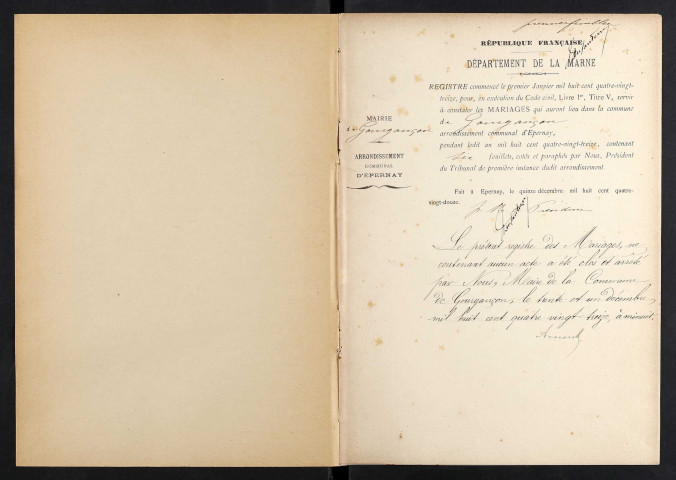 premier feuillet
RÉPUBLIQUE FRANÇAISE
DÉPARTEMENT DE LA MARNE
MAIRIE
de Gourgançon
ARRONDISSEMENT
COMMUNAL
D'ÉPERNAY
REGISTRE commencé le premier Janvier mil huit cent quatre-vingt-
treize, pour, en exécution du Code civil, Livre Ier, Titre V, servir
à constater les MARIAGES qui auront lieu dans la commune
de Gourgançon
arrondissement communal d'Épernay,
pendant ledit an mil huit cent quatre-vingt-treize, contenant
six feuillets, cotés et paraphés par Nous, Président
du Tribunal de première instance dudit arrondissement.
Fait à Épernay, le quinze décembre mil huit cent quatre-
vingt-douze.
Président
Le présent registre des Mariages, ne
contenant aucun acte a été clos et arrêté
par Nous, Maire de la Commune
de Gourgançon, le trente et un décembre
mil huit cent quatre vingt treize, à minuit.